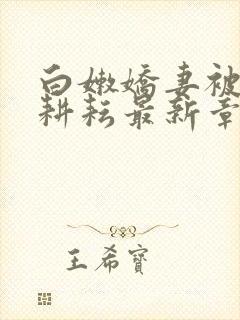 白嫩嬌妻被
耕耘最新章
王希寶